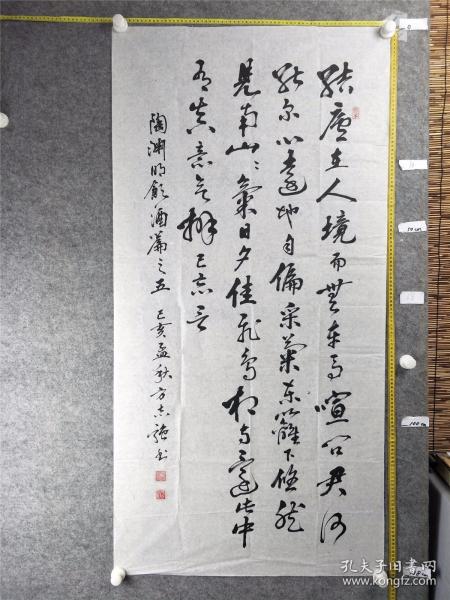 結廬在人境而無車馬喧問君何
能尔心遠地自偏采菊東籬下悠然
見南山〻氣日夕佳飛鳥相与還此中
有真意欲辨已忘言
陶渊明飲酒篇之五 己亥孟秋方志強书
0
50cm
100cm
孔夫子旧书网
kongfz.com